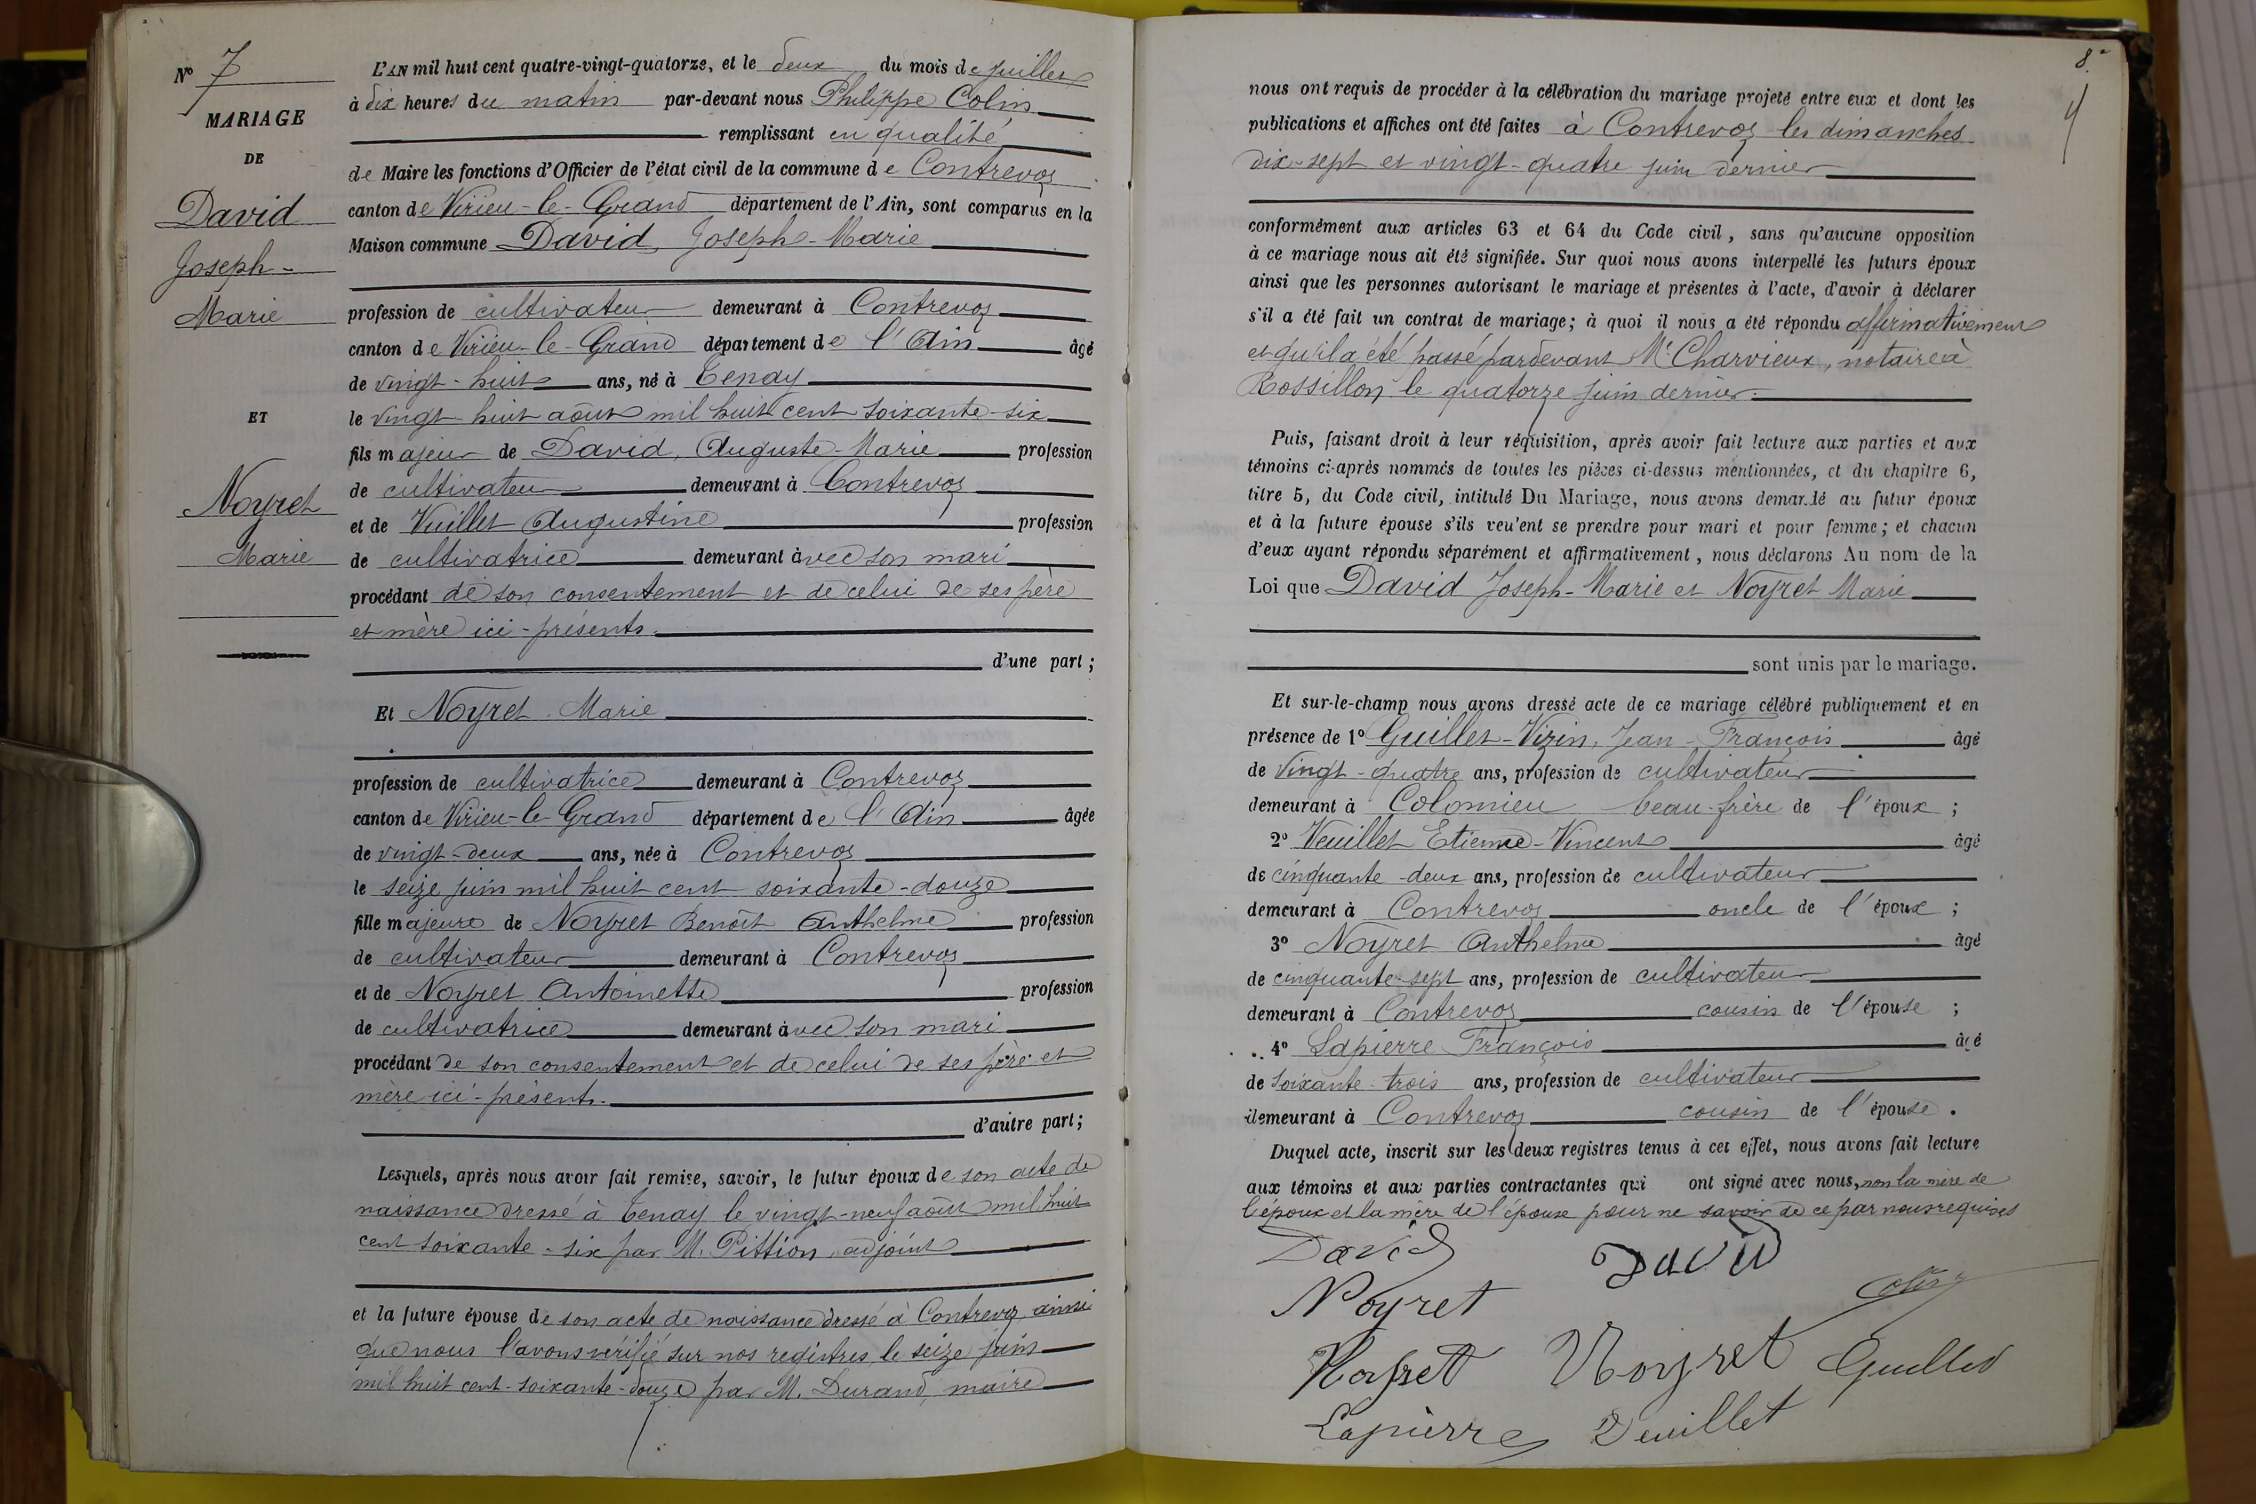 N° 7
MARIAGE
DE
David
Joseph-
Marie
ET
Noyret
Marie
L'AN mil huit cent quatre-vingt-quatorze, et le deux du mois de juillet
à dix heures du matin par-devant nous Philippe Colin
remplissant en qualité
de Maire les fonctions d'Officier de l'état civil de la commune de Contrevoz
canton de Virieu-le-Grand département de l'Ain, sont comparus en la
Maison commune David, Joseph-Marie
profession de cultivateur demeurant à Contrevoz
canton de Virieu-le-Grand département de l'Ain âgé
de vingt-huit ans, né à Tenay
le vingt huit août mil huit cent soixante-six
fils majeur de David, Auguste-Marie profession
de cultivateur demeurant à Contrevoz
et de Vuillet Augustine profession
de cultivatrice demeurant avec son mari
procédant de son consentement et de celui de ses père
et mère ici-présents.
d'une part ;
Et Noyret Marie
profession de cultivatrice demeurant à Contrevoz
canton de Virieu-le-Grand département de l'Ain âgée
de vingt-deux ans, née à Contrevoz
le seize juin mil huit cent soixante-douze
fille majeure de Noyret Benoît Anthelme profession
de cultivateur demeurant à Contrevoz
et de Noyret Antoinette profession
de cultivatrice demeurant avec son mari
procédant de son consentement et de celui de ses père et
mère ici-présents.
d'autre part ;
Lesquels, après nous avoir fait remise, savoir, le futur époux de son acte de
naissance dressé à Tenay le vingt-neuf août mil huit
cent soixante-six par M. Pittion, adjoint
et la future épouse de son acte de naissance dressé à Contrevoz, ainsi
que nous l'avons vérifié sur nos registres, le seize juin
mil huit cent-soixante-douze par M. Durand, maire
8
nous ont requis de procéder à la célébration du mariage projeté entre eux et dont les
publications et affiches ont été faites à Contrevoz les dimanches
dix-sept et vingt-quatre juin dernier
conformément aux articles 63 et 64 du Code civil, sans qu'aucune opposition
à ce mariage nous ait été signifiée. Sur quoi nous avons interpellé les futurs époux
ainsi que les personnes autorisant le mariage et présentes à l'acte, d'avoir à déclarer
s'il a été fait un contrat de mariage ; à quoi il nous a été répondu affirmativement
et qu'il a été passé pardevant Me Charvieux, notaire à
Rossillon le quatorze juin dernier.
Puis, faisant droit à leur réquisition, après avoir fait lecture aux parties et aux
témoins ci-après nommés de toutes les pièces ci-dessus mentionnées, et du chapitre 6,
titre 5, du Code civil, intitulé Du Mariage, nous avons demandé au futur époux
et à la future épouse s'ils veulent se prendre pour mari et pour femme ; et chacun
d'eux ayant répondu séparément et affirmativement, nous déclarons Au nom de la
Loi que David Joseph-Marie et Noyret Marie
sont unis par le mariage.
Et sur-le-champ nous avons dressé acte de ce mariage célébré publiquement et en
présence de 1° Guillet-Vizin, Jean-François âgé
de vingt-quatre ans, profession de cultivateur
demeurant à Colomieu beau-frère de l'époux ;
2° Veuillet Etienne-Vincent âgé
de cinquante-deux ans, profession de cultivateur
demeurant à Contrevoz oncle de l'époux ;
3° Noyret Anthelme âgé
de cinquante-sept ans, profession de cultivateur
demeurant à Contrevoz cousin de l'épouse ;
4° Lapierre François âgé
de soixante-trois ans, profession de cultivateur
demeurant à Contrevoz cousin de l'épouse.
Duquel acte, inscrit sur les deux registres tenus à cet effet, nous avons fait lecture
aux témoins et aux parties contractantes qui ont signé avec nous, non la mère de
l'époux et la mère de l'épouse pour ne savoir de ce par nous requises
David David
Noyret Colin
Noyret Noyret Guillet
Lapierre Veuillet